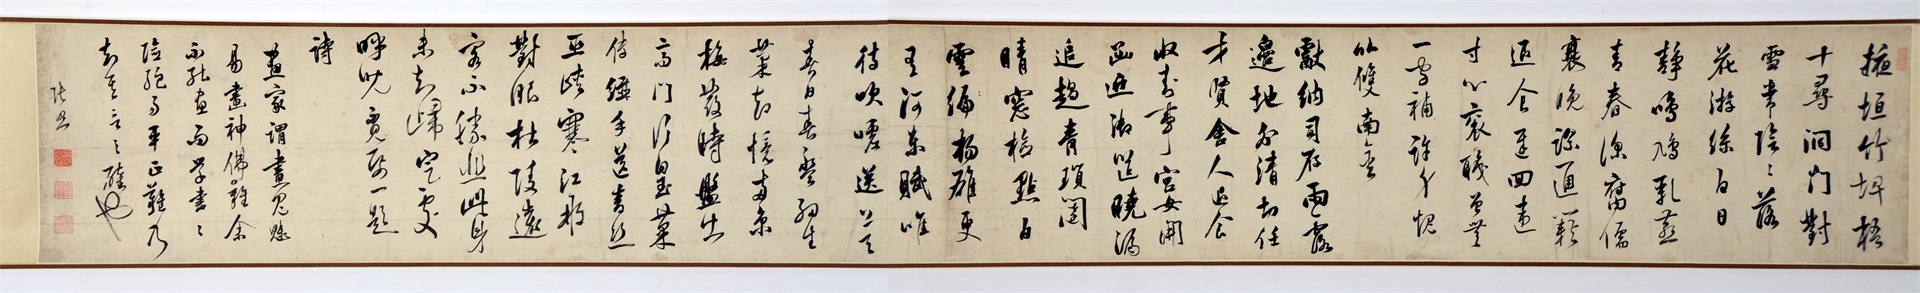 掖垣竹埤梧
十尋洞門對
雪常陰陰落
花游絲白日
靜鳴鳩乳燕
青春深腐儒
衰晚謬通籍
退食遲回違
寸心衮職曾無
一字補許身愧
比雙南金
獻納司存雨露
邊地分清切任
才賢舍人退食
收封事宮女開
函近御筵曉漏
追趨青瑣闥
晴窗檢點白
雲編楊雄更
有河東賦唯
待吹噓送上天
春日春盤細生
菜忽憶兩京
梅發時盤出
高門行白玉菜
傳纖手送青絲
巫峽寒江那
對眼杜陵遠
客不勝悲此身
未知歸定處
呼兒覓紙一題
詩
畫家謂畫鬼魅
易畫神佛難余
不能畫而學書書
險絕易平正難乃
知其言之確也
張照